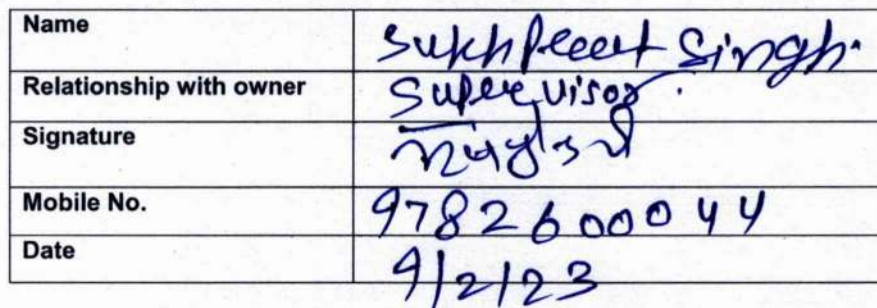 Name Sukhpreet Singh.
Relationship with owner Supervisor.
Signature
Mobile No. 9782600044
Date 9/2/23